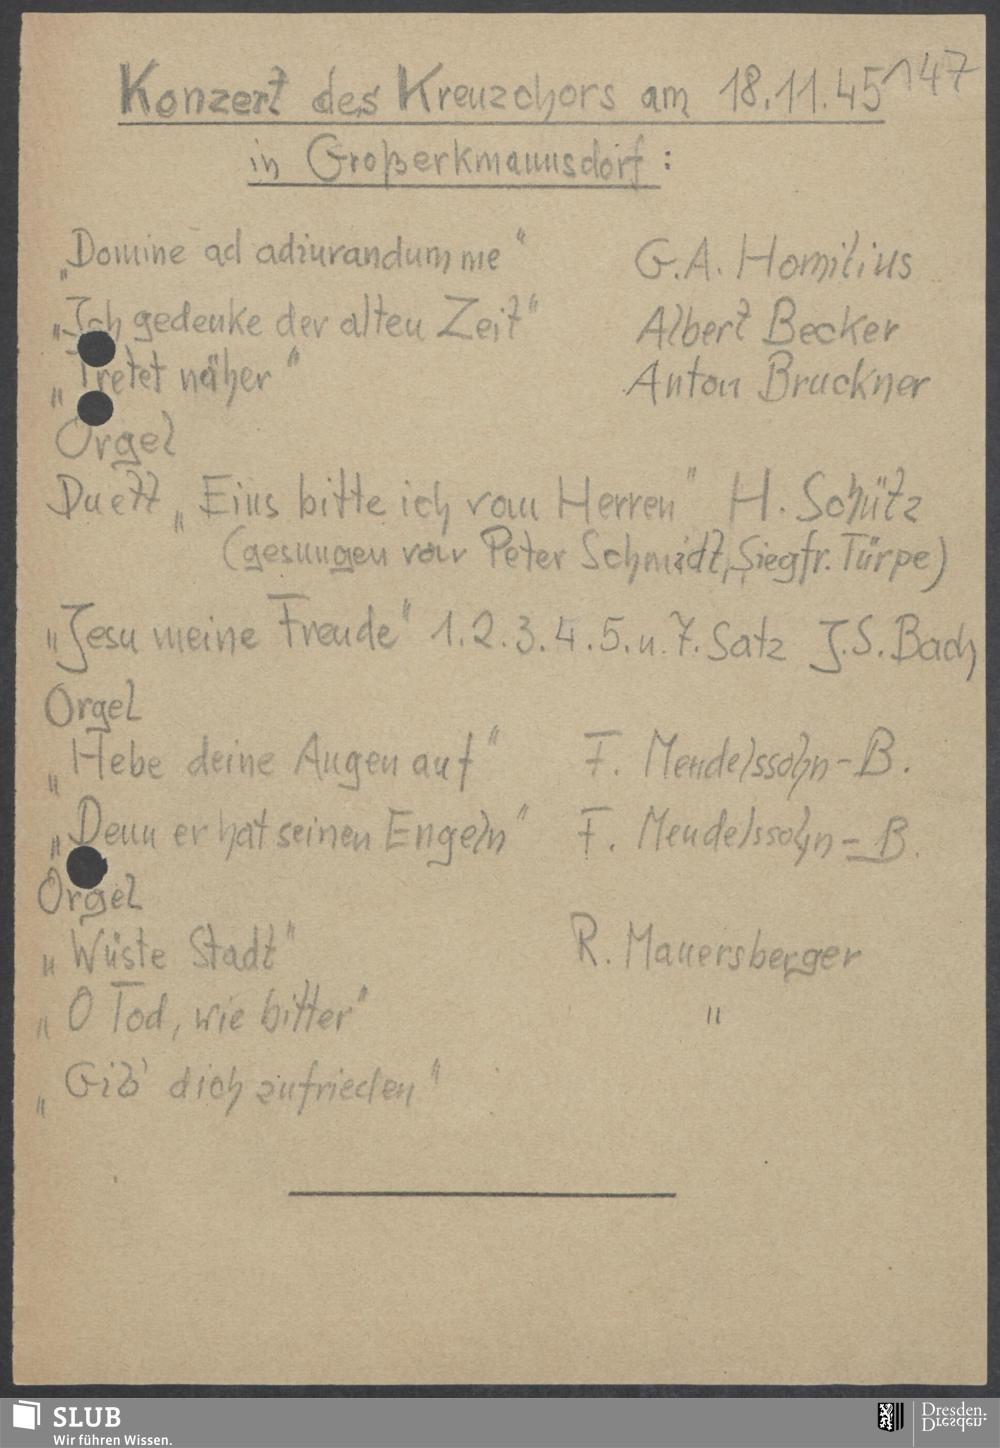 Konzert des Kreuzchors am 18.11.45 147
in Großerkmannsdorf:
„Domine ad adiurandum me" G.A. Homilius
„Ich gedenke der alten Zeit" Albert Becker
„Tretet näher" Anton Bruckner
Orgel
Duett „Eins bitte ich vom Herren" H. Schütz
(gesungen von Peter Schmidt, Siegfr. Türpe)
„Jesu meine Freude" 1.2.3.4.5.u.7. Satz J.S. Bach
Orgel
„Hebe deine Augen auf" F. Mendelssohn-B.
„Denn er hat seinen Engeln" F. Mendelssohn-B.
Orgel
„Wüste Stadt" R. Mauersberger
„O Tod, wie bitter" "
„Gib' dich zufrieden"
SLUB
Wir führen Wissen.
Dresden.
Dresden.